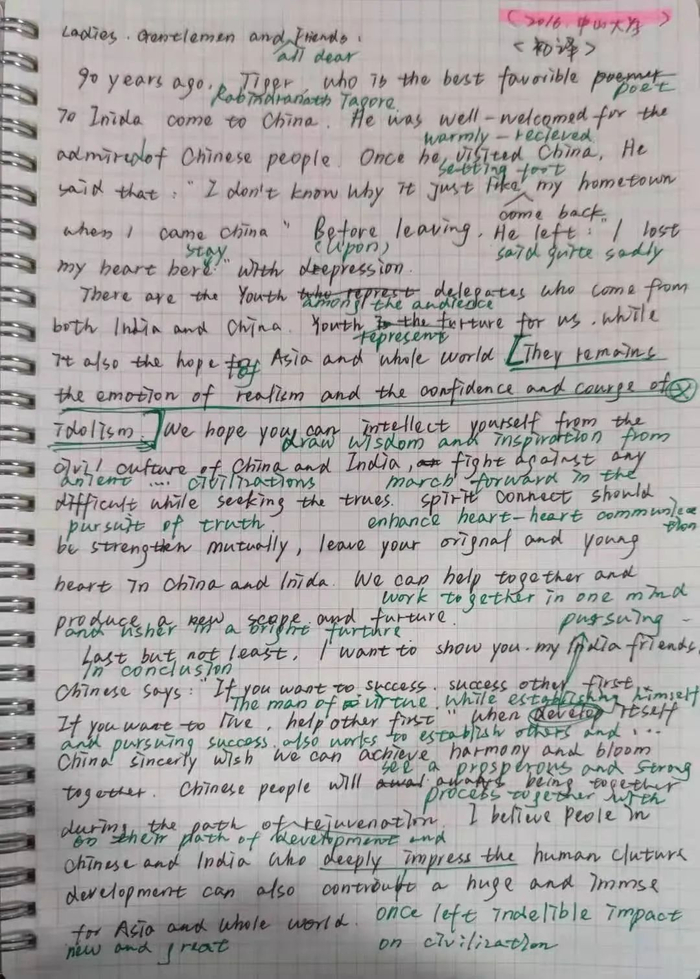 (2016.中山大学)
Ladies. Gentlemen and friends.
<初译>
all dear
90 years ago. Tiger who is the best favorible poemer
Rabindranath Tagore
poet
To Inida come to China. He was well-welcomed for the
warmly-recieved
admiredof Chinese people. Once he visited China, He
setting foot
said that: "I don't know why it just like my hometown
come back
when I came China" Before leaving. He left: "I lost
stay (upon) said quite sadly
my heart here." with depression.
There are the Youth who represt delegates who come from
amongst the audience
both India and China. Youth is the furture for us. while
represent
it also the hope for Asia and whole world [They remains
of
the emotion of realism and the confidence and courge of
idolism.] We hope you can intellect yourself from the
draw wisdom and inspiration from
civil culture of China and India, fight against any
anient ... civilizations march forward in the
difficult while seeking the trues. spirit connect should
pursuit of truth. enhance heart-heart communication
be strengthen mutually, leave your orignal and young
heart in China and Inida. We can help together and
work together in one mind
produce a new scope and furture.
and usher in a bright furture pursuing
Last but not least, I want to show you my India friends,
in conclusion
Chinese says: "If you want to success. success other first
The man of virtue, while establishing himself
If you want to live, help other first" when develop itself
and pursuing success, also works to establish others and ...
China sincerly wish we can achieve harmony and bloom
see a prosperous and strong
together. Chinese people will being together
process together with
during the path of rejuvenation. I believe people in
on their path of development and
Chinese and India who deeply impress the human cluture
development can also contribupt a huge and immse
for Asia and whole world. once left indelible impact
new and great on civilization